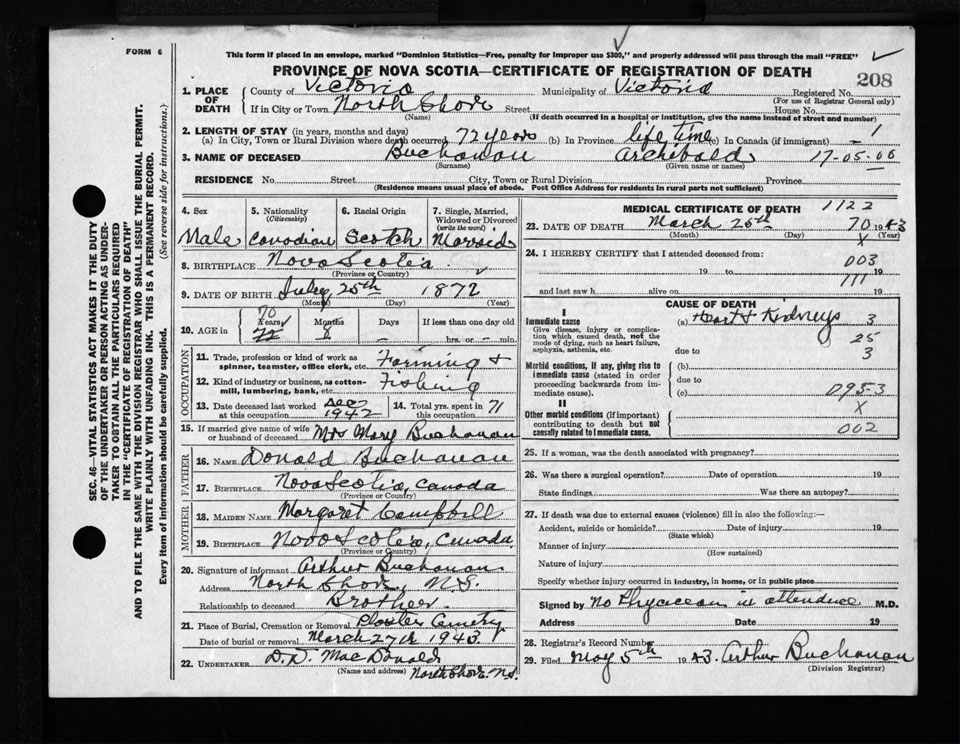 FORM 6
This form if placed in an envelope, marked "Dominion Statistics—Free, penalty for improper use $300," and properly addressed will pass through the mail "FREE"
PROVINCE OF NOVA SCOTIA—CERTIFICATE OF REGISTRATION OF DEATH
208
1. PLACE OF DEATH
County of Victoria Municipality of Victoria Registered No.
(For use of Registrar General only)
If in City or Town North Shore Street House No.
(Name) (If death occurred in a hospital or institution, give the name instead of street and number)
2. LENGTH OF STAY (in years, months and days)
(a) In City, Town or Rural Division where death occurred 72 years (b) In Province life time (c) In Canada (if immigrant) — 1
3. NAME OF DECEASED Buchanan Archibald 17-05-06
(Surname) (Given name or names)
RESIDENCE No. Street City, Town or Rural Division Province
(Residence means usual place of abode. Post Office Address for residents in rural parts not sufficient)
4. Sex
Male
5. Nationality
(Citizenship)
Canadian
6. Racial Origin
Scotch
7. Single, Married, Widowed or Divorced
(write the word)
Married
8. BIRTHPLACE Nova Scotia
(Province or Country)
9. DATE OF BIRTH July 25th 1872
(Month) (Day) (Year)
10. AGE in
70
Years Months Days If less than one day old
72 8 – hrs. or – min.
OCCUPATION
11. Trade, profession or kind of work as spinner, teamster, office clerk, etc. Farming &
12. Kind of industry or business, as cotton-mill, lumbering, bank, etc. Fishing
13. Date deceased last worked at this occupation Dec 1942
14. Total yrs. spent in this occupation 71
15. If married give name of wife or husband of deceased Mrs Mary Buchanan
FATHER
16. NAME Donald Buchanan
17. BIRTHPLACE Nova Scotia, Canada
(Province or Country)
MOTHER
18. MAIDEN NAME Margaret Campbell
19. BIRTHPLACE Nova Scotia, Canada
(Province or Country)
20. Signature of informant Arthur Buchanan
Address North Shore, N.S.
Relationship to deceased Brother
21. Place of Burial, Cremation or Removal Cemetry
Date of burial or removal March 27th 1943
22. UNDERTAKER D.D. MacDonald
(Name and address) North Shore. N.S.
MEDICAL CERTIFICATE OF DEATH 1122
23. DATE OF DEATH March 25th 70 1943
(Month) (Day) X (Year)
24. I HEREBY CERTIFY that I attended deceased from:
003
19 to 19
111
and last saw h alive on 19
CAUSE OF DEATH
I
Immediate cause (a) Heart & Kidneys 3
Give disease, injury or complication which caused death, not the mode of dying, such as heart failure, asphyxia, asthenia, etc.
25
due to 3
Morbid conditions, if any, giving rise to immediate cause (stated in order proceeding backwards from immediate cause).
(b)
due to
(c) D95-3
II
X
Other morbid conditions (if important) contributing to death but not causally related to immediate cause.
002
25. If a woman, was the death associated with pregnancy?
26. Was there a surgical operation? Date of operation 19
State findings Was there an autopsy?
27. If death was due to external causes (violence) fill in also the following:—
Accident, suicide or homicide? Date of injury 19
(State which)
Manner of injury
(How sustained)
Nature of injury
Specify whether injury occurred in industry, in home, or in public place
Signed by No Physician in attendance M.D.
Address Date 19
28. Registrar's Record Number
29. Filed May 5th 1943 Arthur Buchanan
(Division Registrar)
SEC. 46—VITAL STATISTICS ACT MAKES IT THE DUTY
OF THE UNDERTAKER OR PERSON ACTING AS UNDER-
TAKER TO OBTAIN ALL THE PARTICULARS REQUIRED
IN THE "CERTIFICATE OF REGISTRATION OF DEATH"
AND TO FILE THE SAME WITH THE DIVISION REGISTRAR WHO SHALL ISSUE THE BURIAL PERMIT.
WRITE PLAINLY WITH UNFADING INK. THIS IS A PERMANENT RECORD.
Every item of information should be carefully supplied. (See reverse side for instructions.)